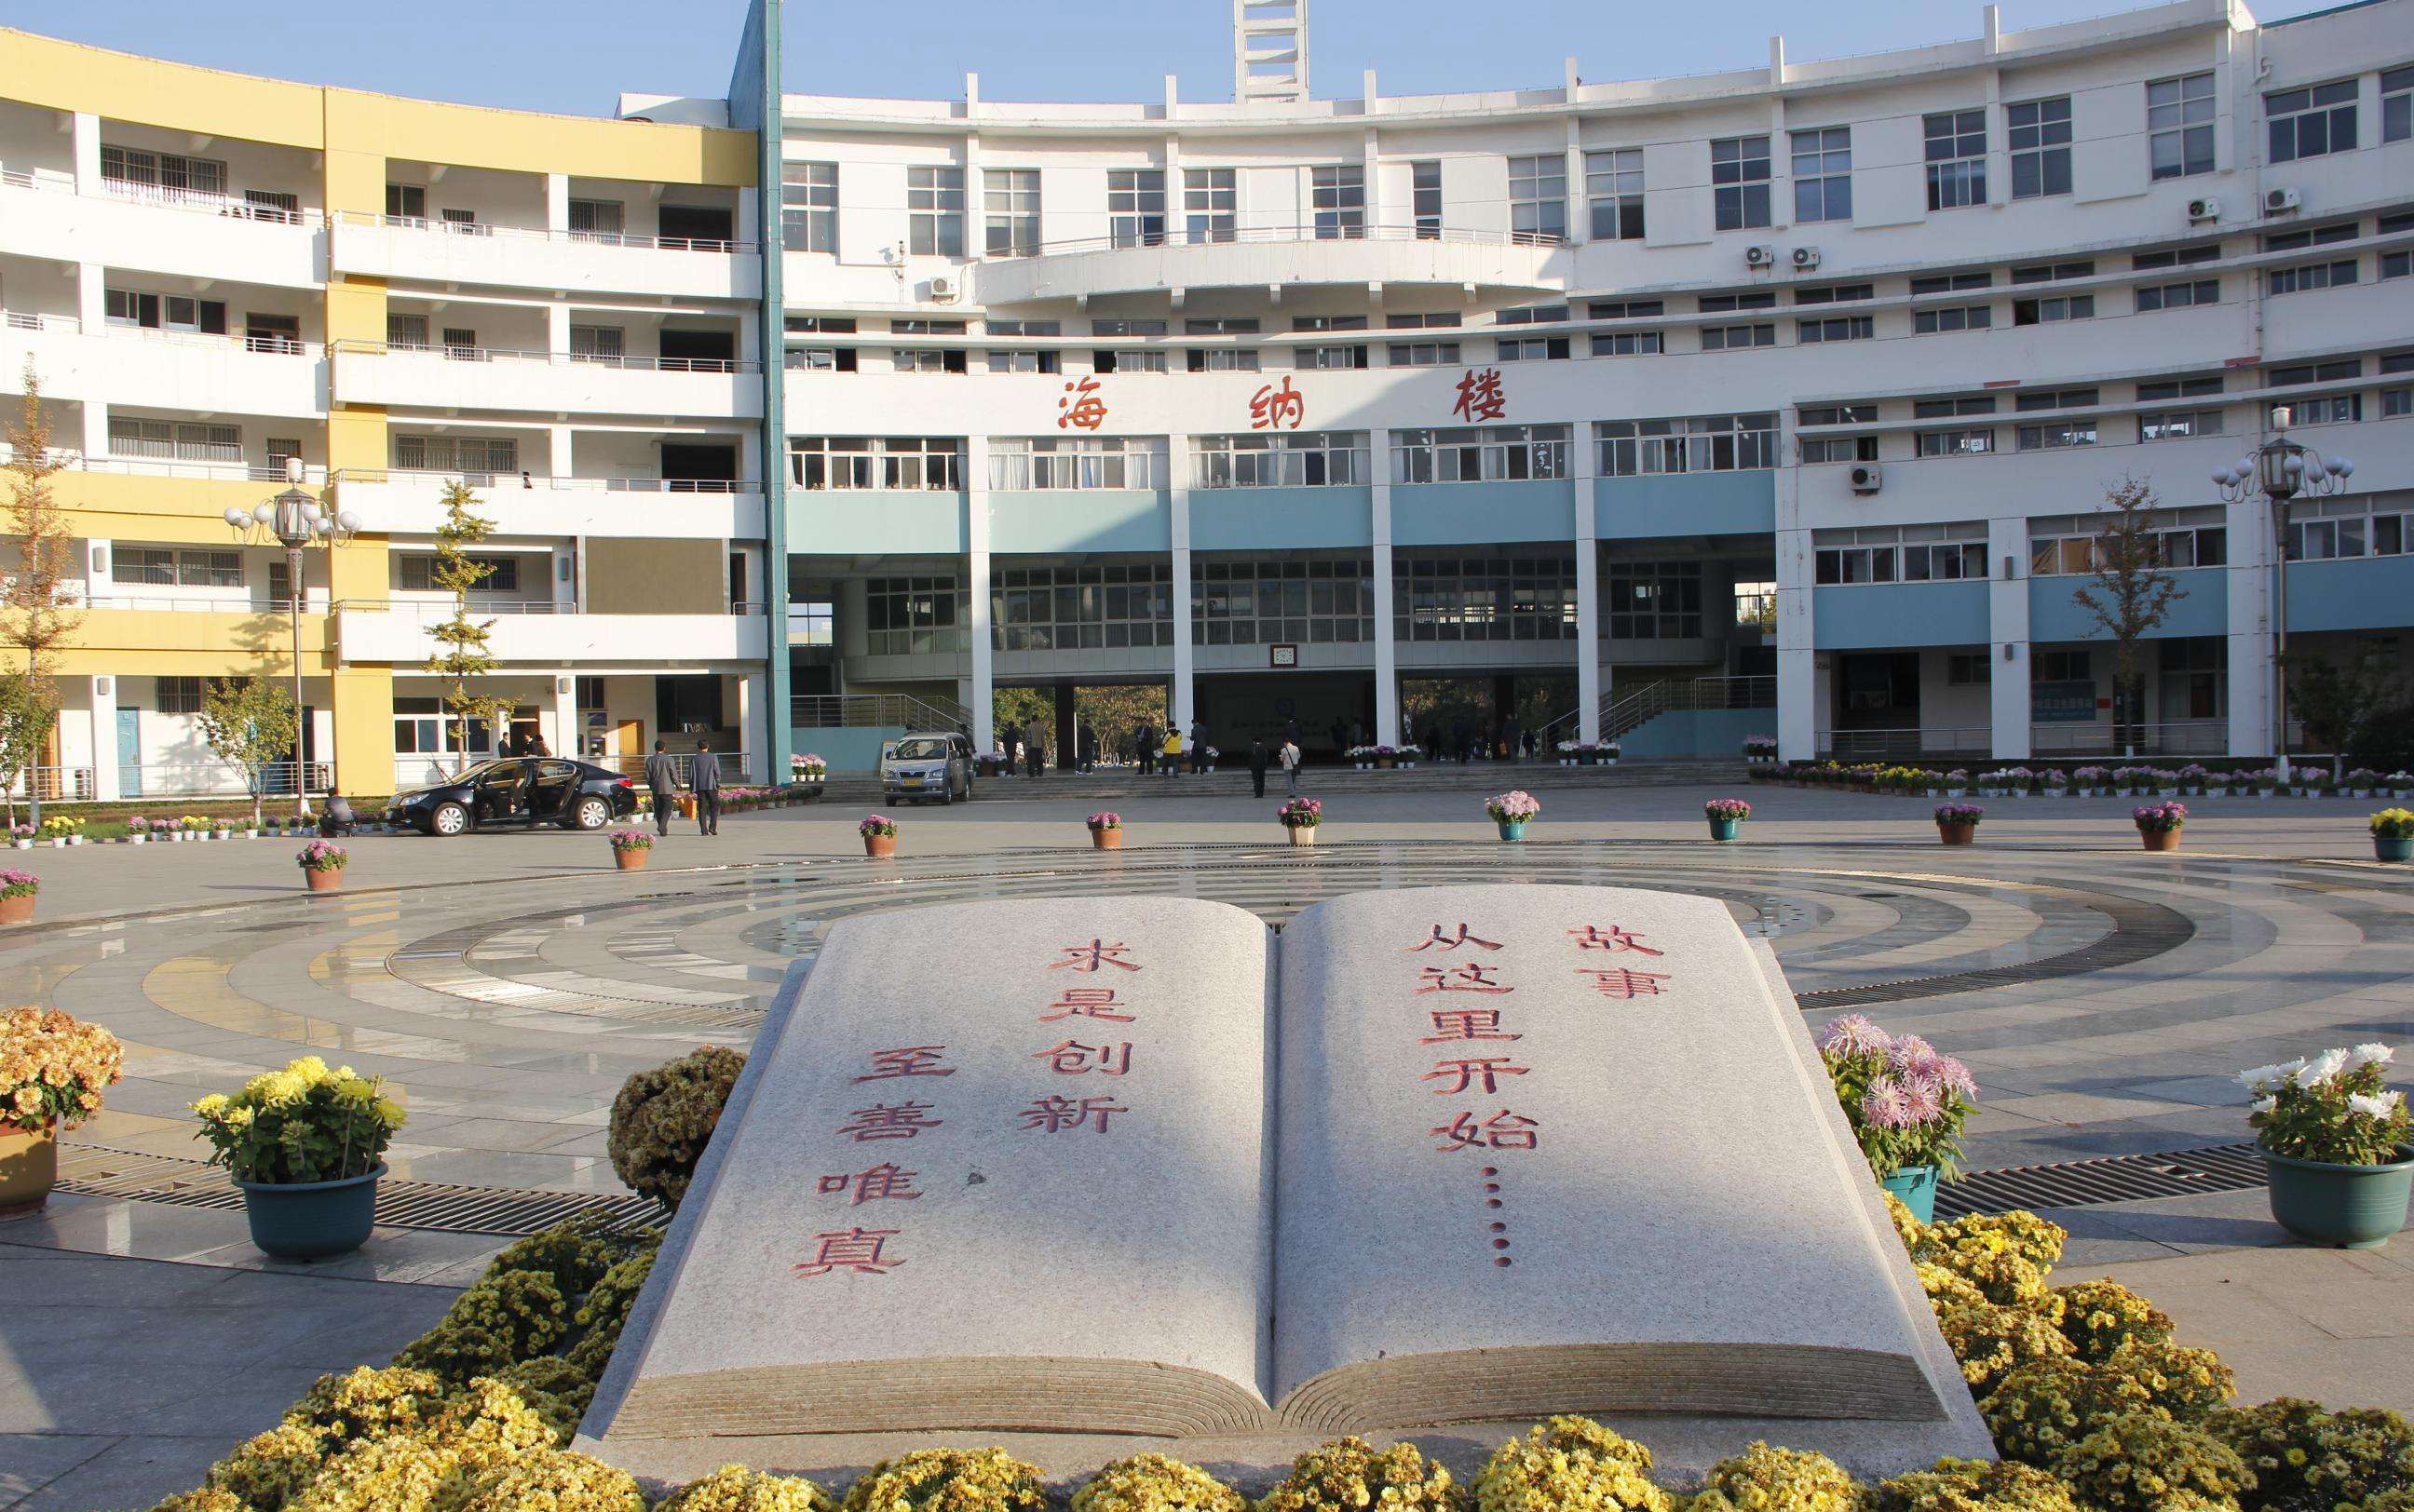 海纳楼
故事
从这里开始……
求是创新
至善唯真